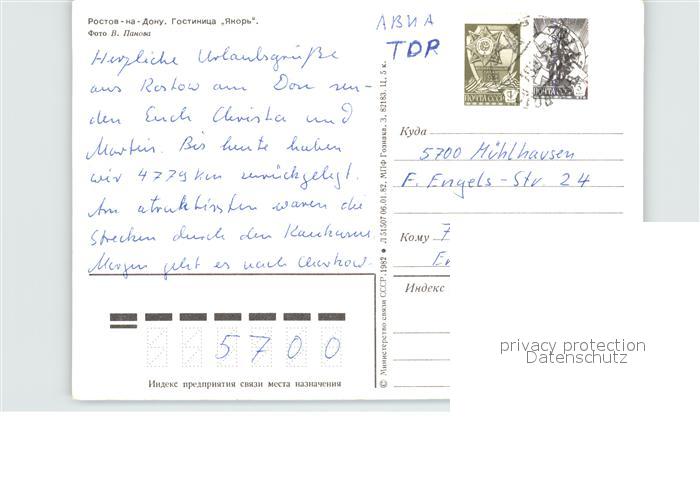 Ростов-на-Дону. Гостиница „Якорь".
Фото В. Панова
Herzliche Urlaubsgrüße
aus Rostow am Don sen-
den Euch Christa und
Martin. Bis heute haben
wir 4779 km zurückgelegt.
Am atraktivsten waren die
Strecken durch den Kaukasus.
Morgen geht es nach Charkow.
5700
Индекс предприятия связи места назначения
© Министерство связи СССР. 1982 • Л 51507 06.01.82. МПФ Гознака. З. 82183. Ц. 5 к.
АВИА
TDR
ПОЧТА СССР
ПОЧТА СССР
Куда
5700 Mühlhausen
F. Engels-Str 24
Кому
Индекс
privacy protection
Datenschutz